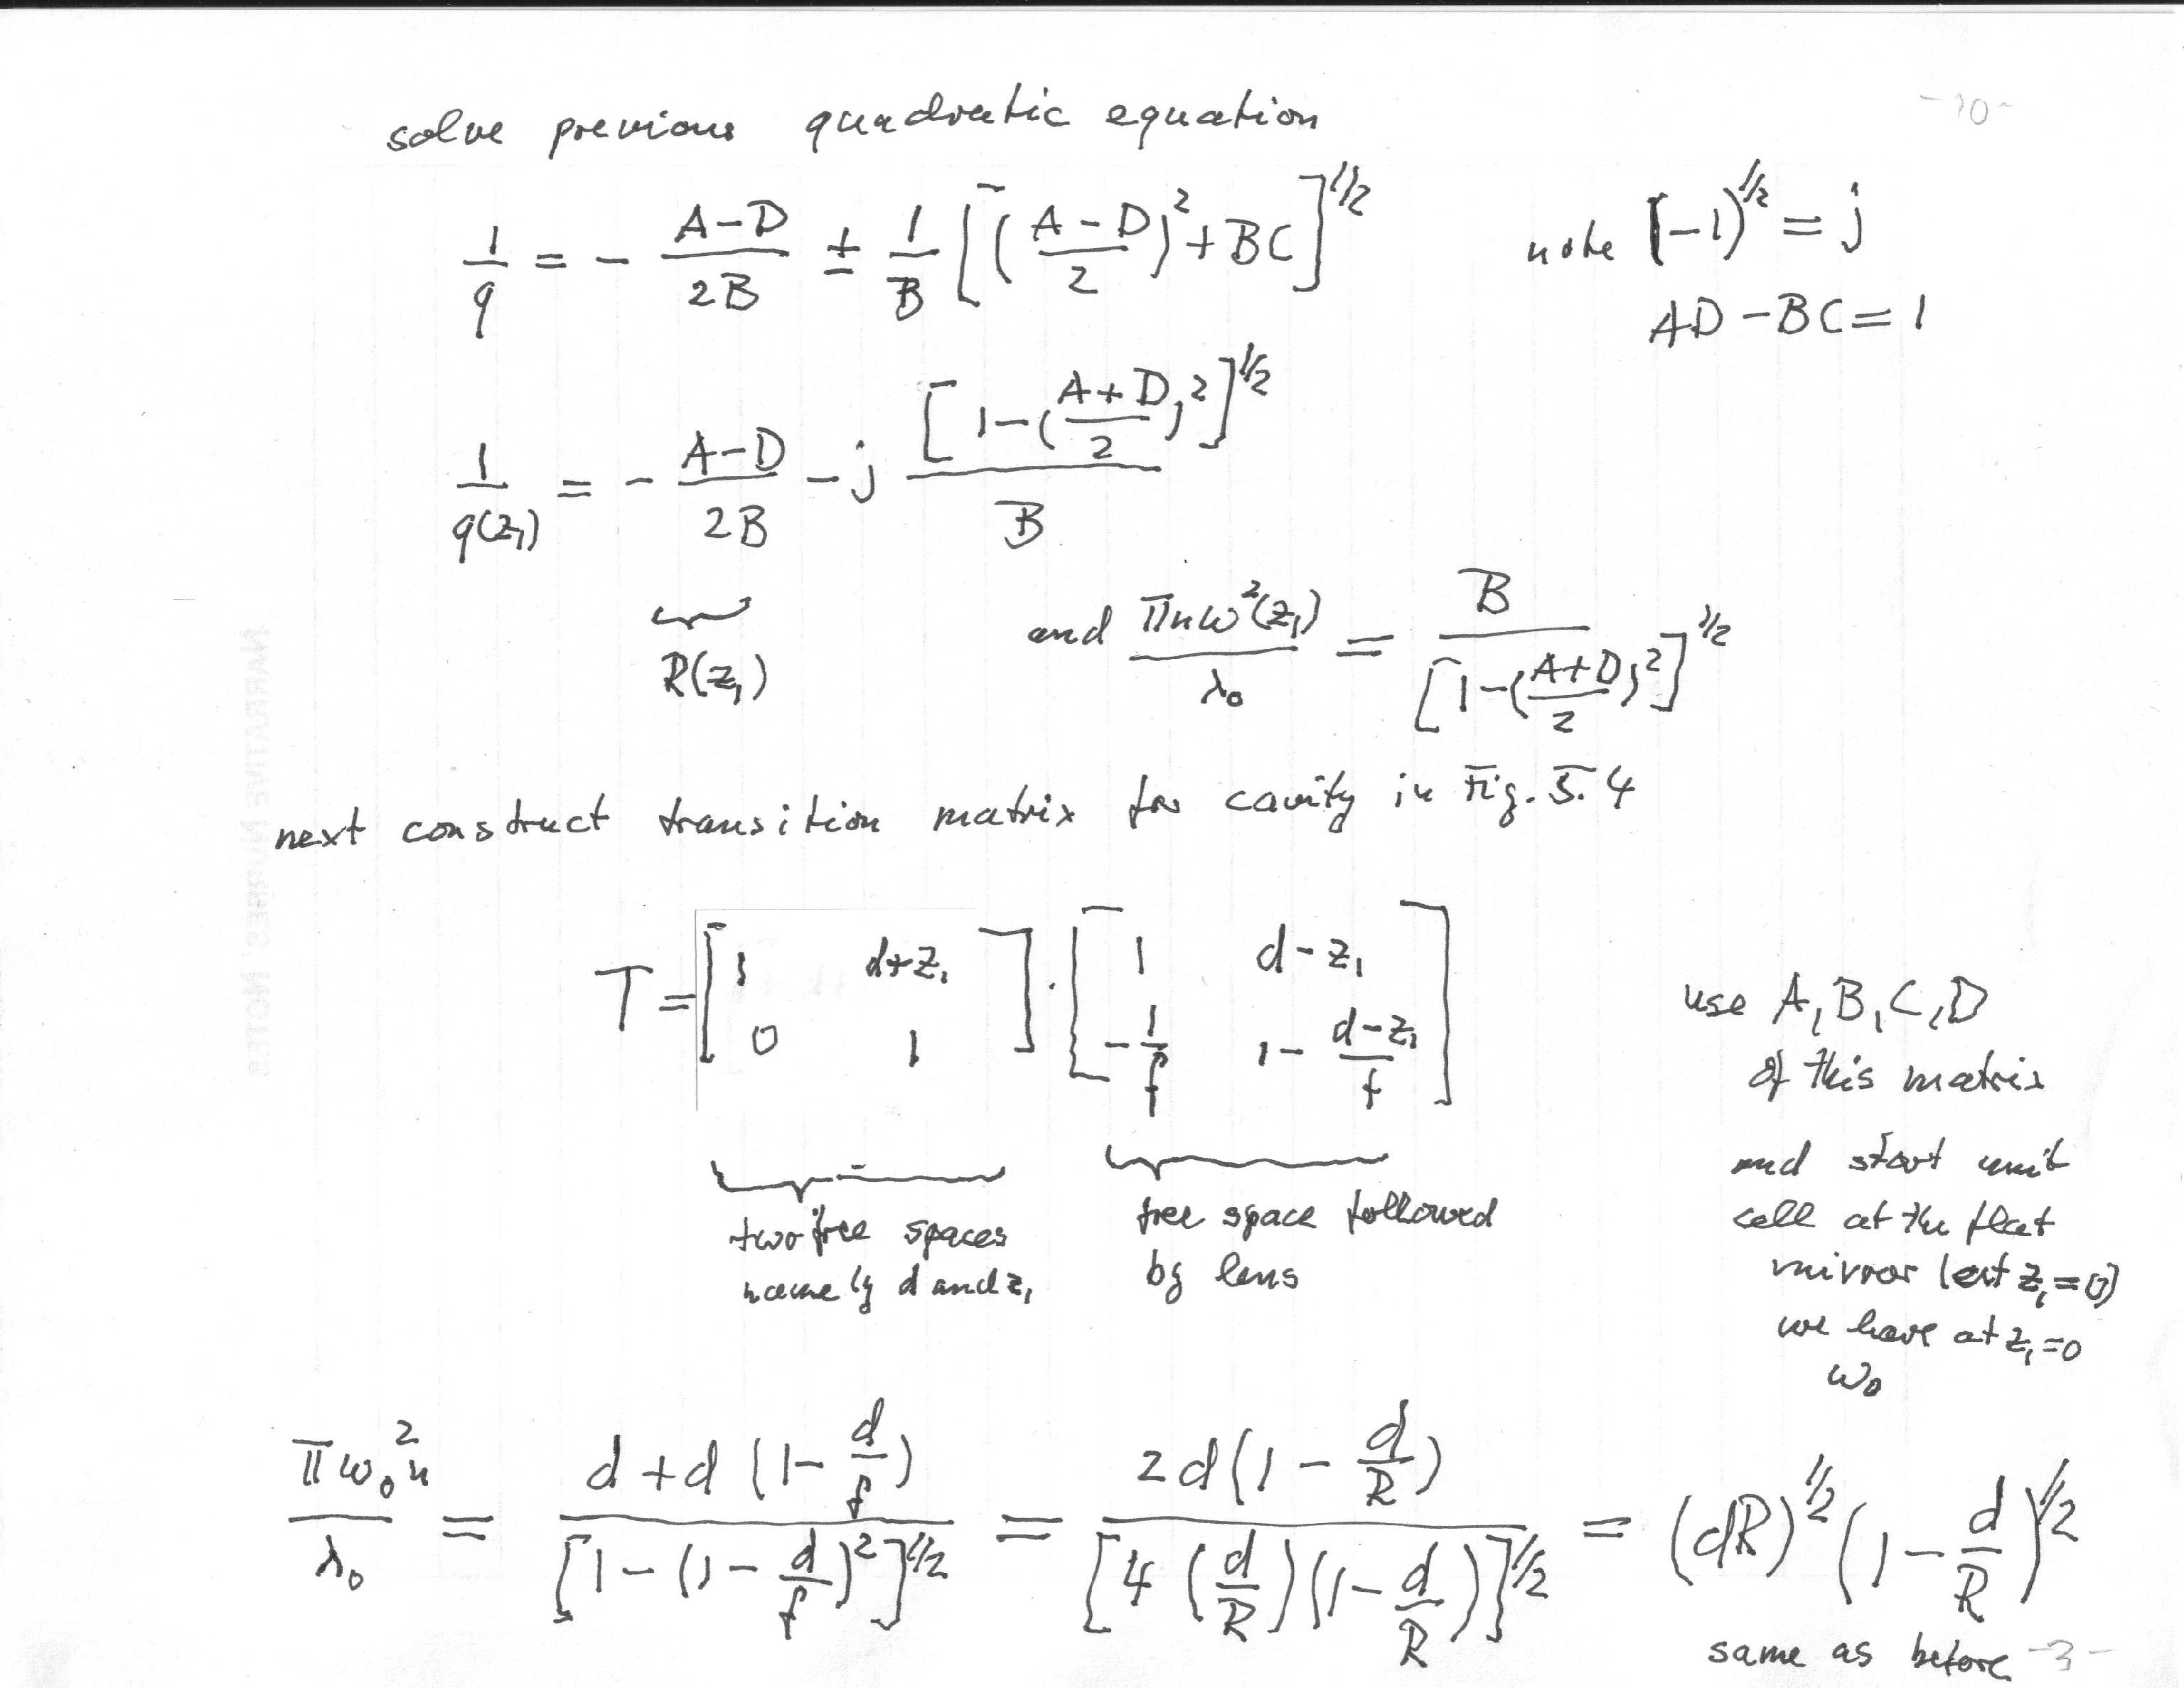 -10-
solve previous quadratic equation
1/q = - (A-D)/2B ± 1/B [((A-D)/2)² + BC]^1/2
note (-1)^1/2 = j
AD - BC = 1
1/q(z₁) = - (A-D)/2B - j [1-((A+D)/2)²]^1/2 / B
R(z₁)
and πnω²(z₁)/λ₀ = B / [1-((A+D)/2)²]^1/2
next construct transition matrix for cavity in Fig. 5.4
T = [1 d+z₁ ; 0 1] · [1 d-z₁ ; -1/f 1-(d-z₁)/f]
two free spaces
namely d and z₁
free space followed
by lens
use A, B, C, D
of this matrix
and start unit
cell at the flat
mirror (at z₁=0)
we have at z₁=0
ω₀
πω₀²n/λ₀ = d+d(1-d/f) / [1-(1-d/f)²]^1/2 = 2d(1-d/R) / [4(d/R)(1-d/R)]^1/2 = (dR)^1/2 (1-d/R)^1/2
same as before
-3-
NARRATIVE NURSES' NOTES